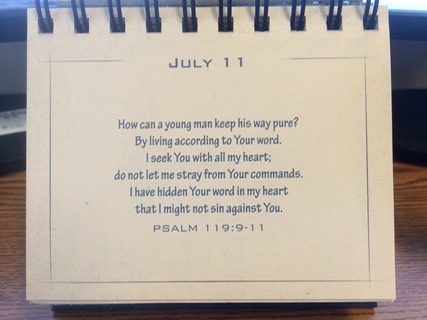 July 11
How can a young man keep his way pure?
By living according to Your word.
I seek You with all my heart;
do not let me stray from Your commands.
I have hidden Your word in my heart
that I might not sin against You.
PSALM 119:9-11